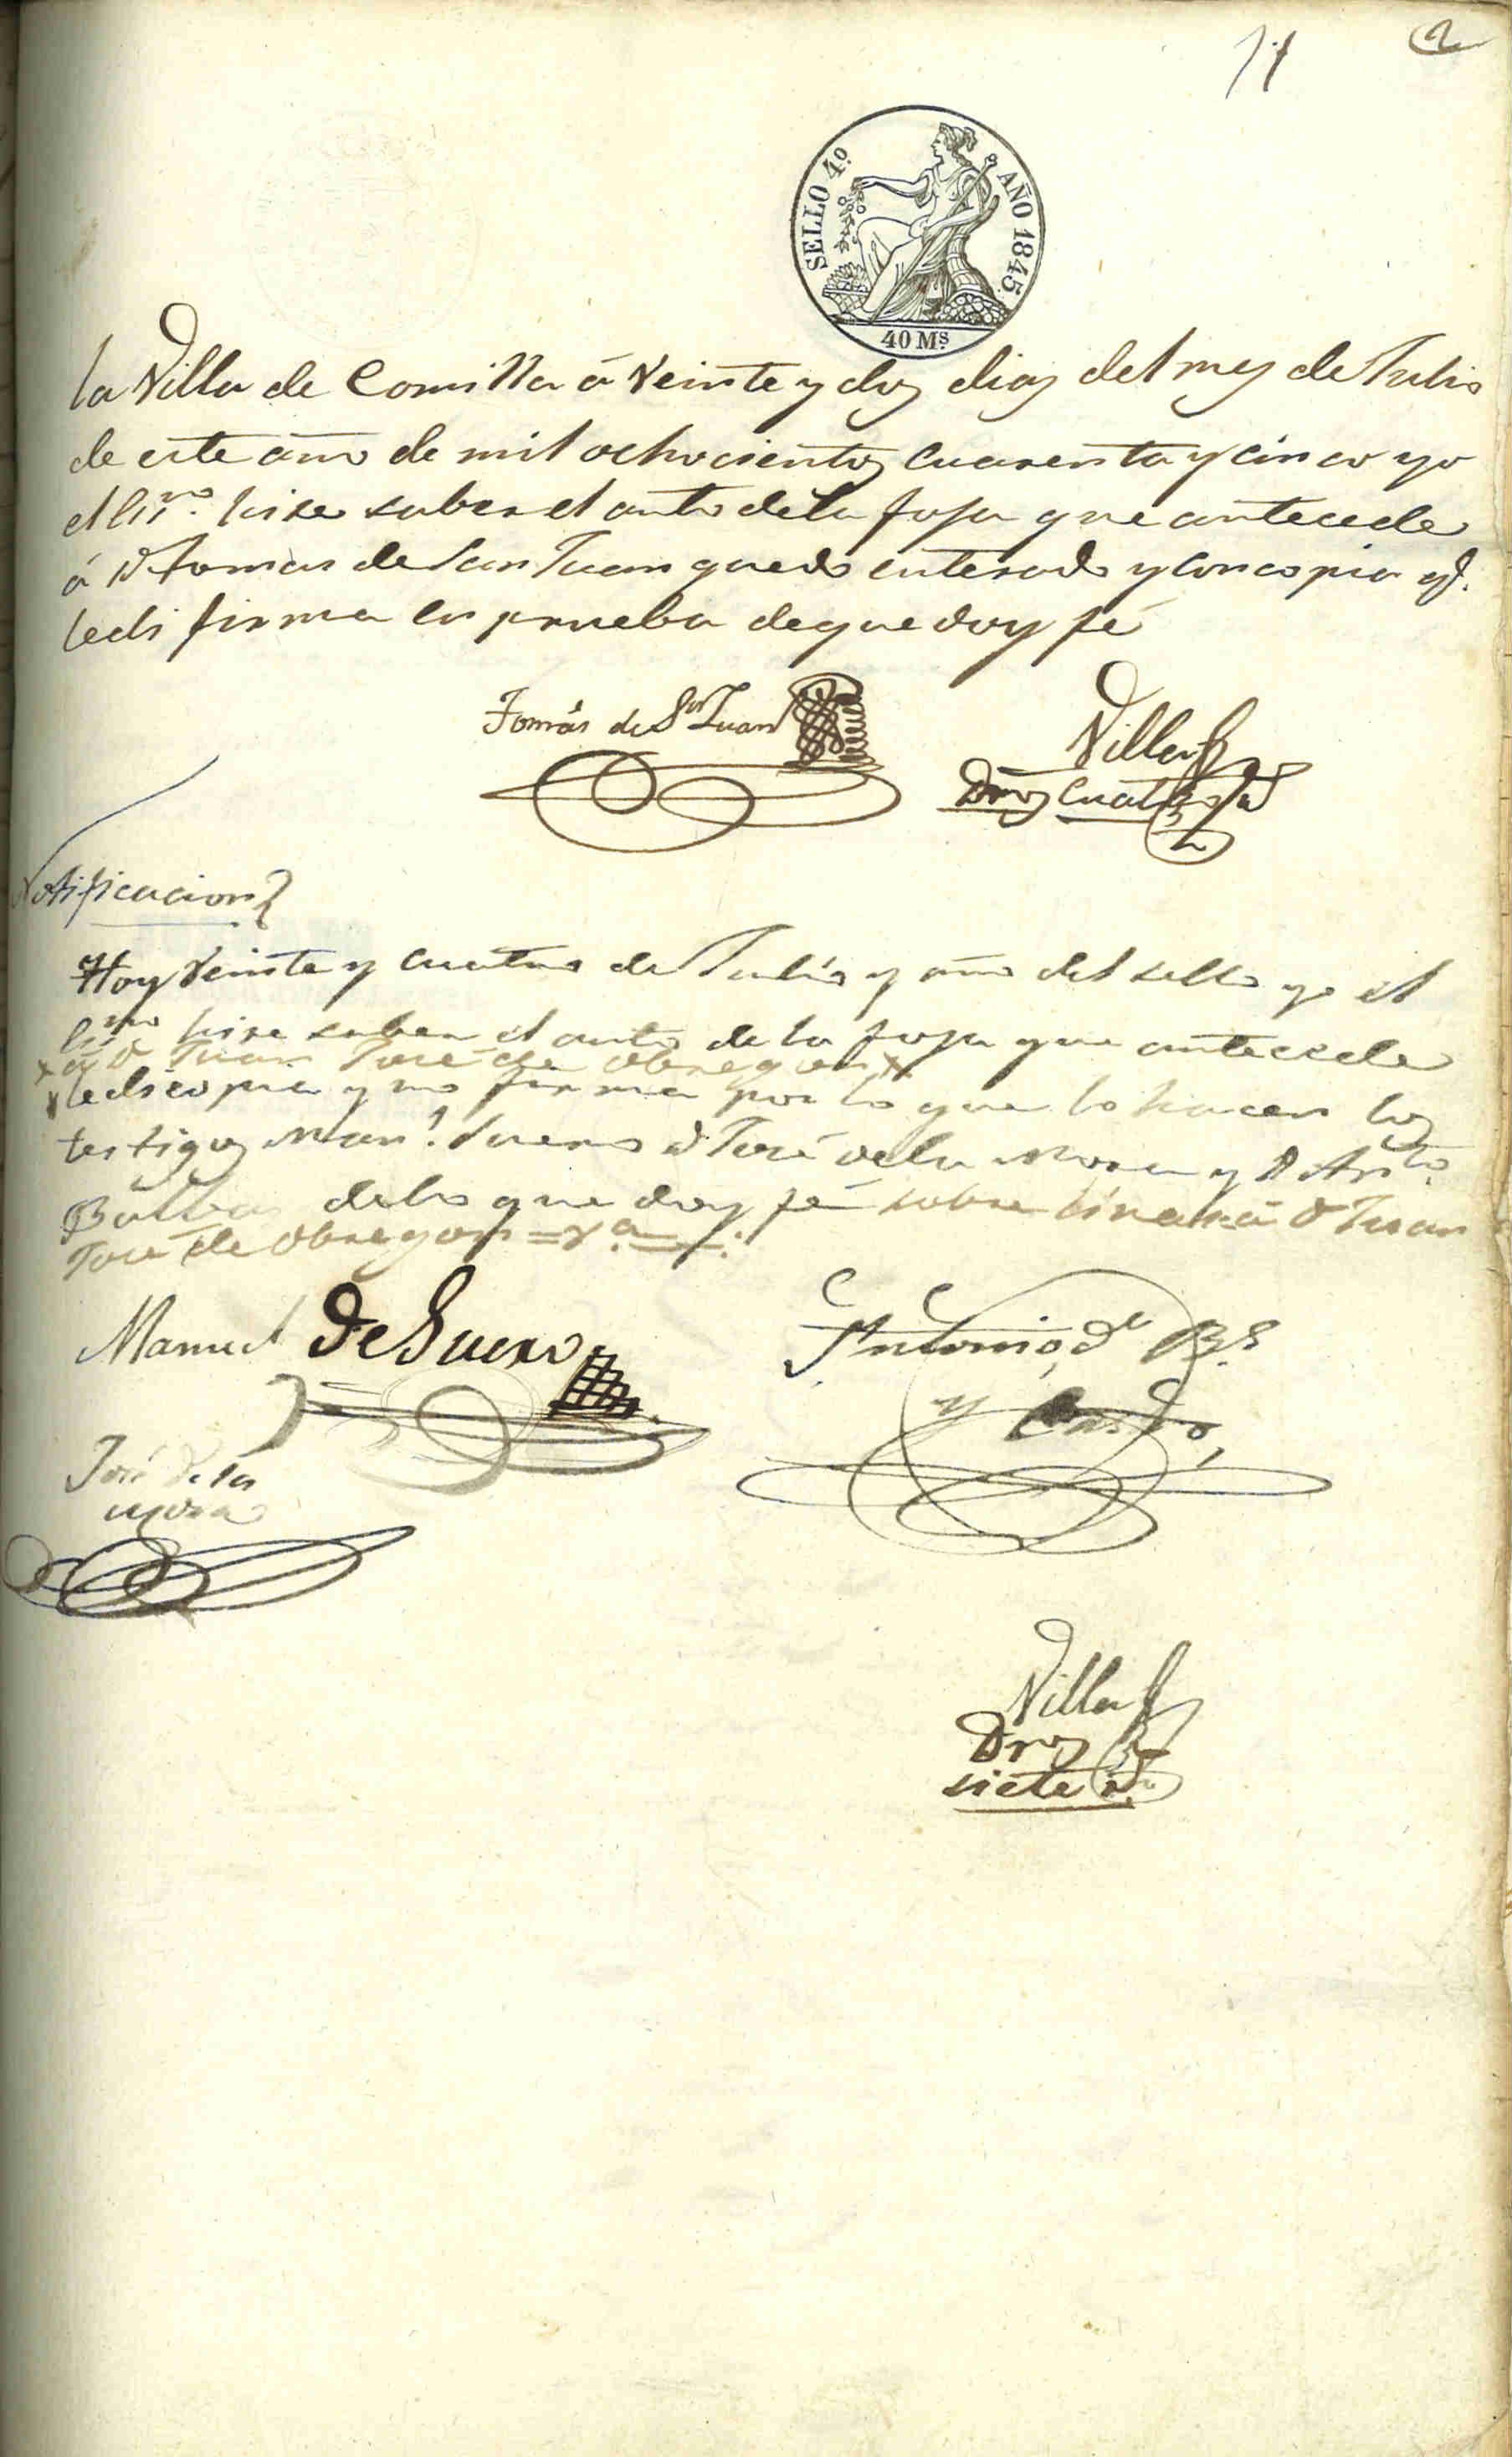 11 2
SELLO 4º. AÑO 1845.
40 Ms
la Villa de Comillas á Veinte y dos dias del mes de Julio
de este año de mil ochocientos cuarenta y cinco yo
el Essno. hise saber el auto de la foja que antecede
á D Tomas de San Juan quedo enterado y con copia qe.
le di firma en prueba de que doy fé
Tomás de Sn Juan
Villa
Dros cuatro rs
Notificacion
Hoy Veinte y cuatro de Julio y año del sello yo el
Essno hise saber el auto de la foja que antecede
x á D Juan José de Obregon x
le di copia y no firma por lo que lo hacen los
testigos Manl. Suero D José de la Mora y D Anto.
Balbas de lo que doy fé sobre linea = á D Juan
José de Obregon = va =
Manuel De Suero
Antonio de Bs
y
José de la
Mora
Villa
Dros
siete rs